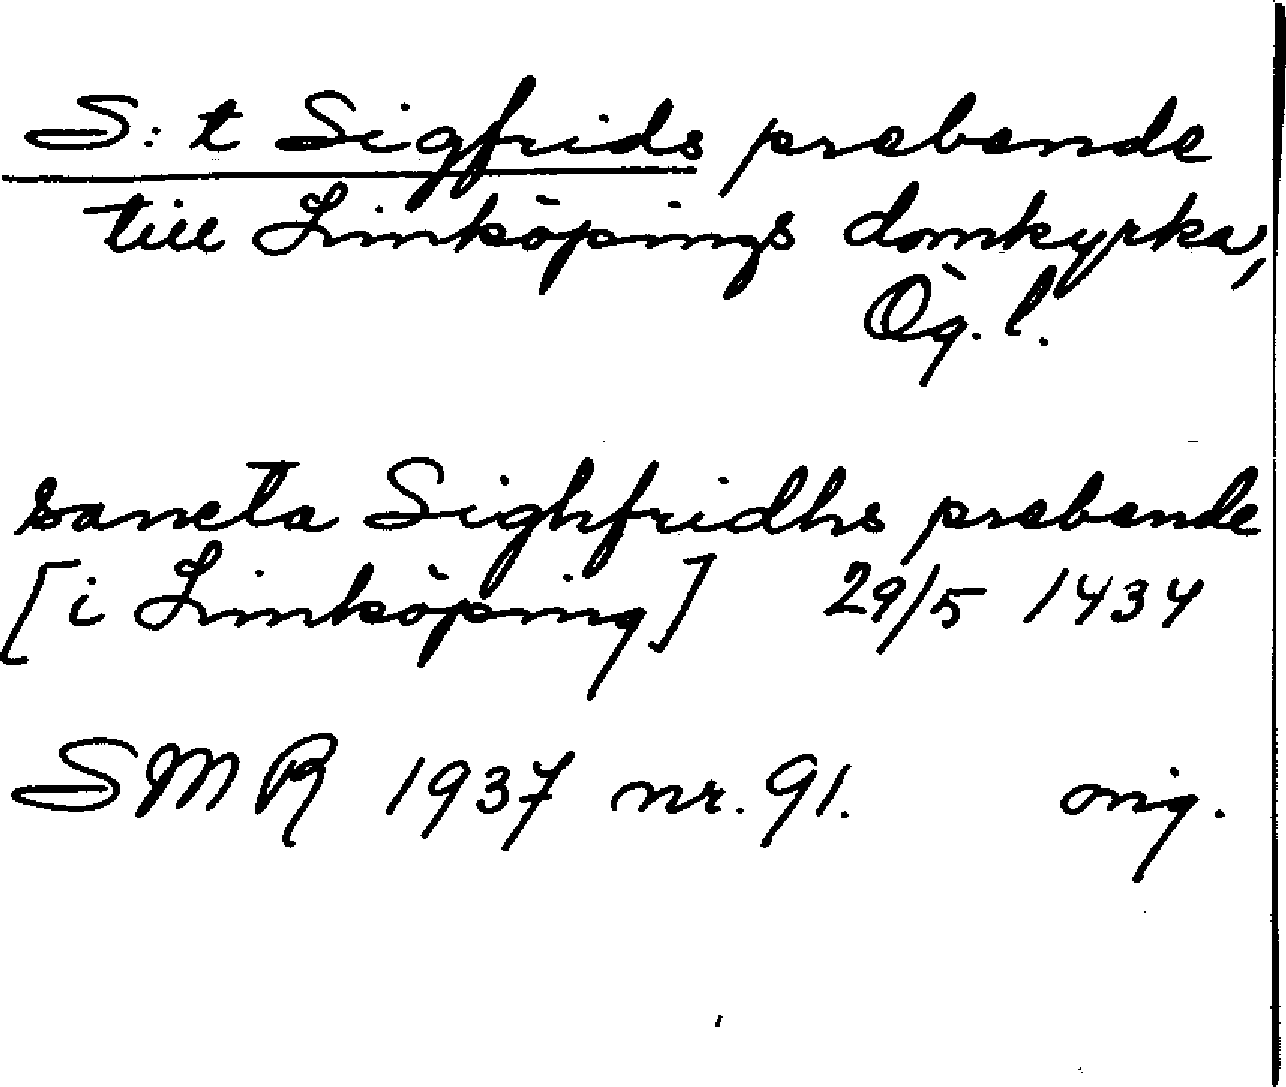 S:t Sigfrids prebende
till Linköpings domkyrka,
Ög. l.
sancta Sighfridhs prebende
[i Linköping] 29/5 1434
SMR 1937 nr. 91. orig.